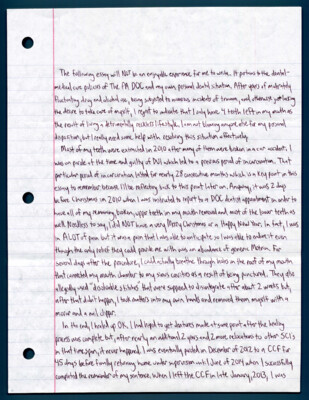 The following essay will NOT be an enjoyable experience for me to write. It pertains to the dental-
medical care policies of the PA DOC and my own personal dental situation. After years of moderately
fluctuating drug and alcohol use, being subjected to numerous incidents of trauma, and otherwise just lacking
the desire to take care of myself, I regret to indicate that I only have 4 teeth left in my mouth as
the result of living a detrimentally reckless lifestyle. I am not blaming anyone else for my personal
disposition, but I really need some help with resolving this situation effectively.
Most of my teeth were extracted in 2010 after many of them were broken in a car accident. I
was on parole at the time and guilty of DUI which led to a previous period of incarceration. That
particular period of incarceration lasted for nearly 28 consecutive months which is a key point in this
essay to remember because I'll be reflecting back to this point later on. Anyway, it was 2 days
before Christmas in 2010 when I was instructed to report to a DOC dentist appointment in order to
have all of my remaining broken, upper teeth in my mouth removed and most of the lower teeth as
well. Needless to say, I did NOT have a very Merry Christmas or a Happy New Year. In fact, I was
in ALOT of pain but it was a pain that I was able to
even
though the only relief they could provide me with was an abundance of generic Motrin. For
several days after the procedure, I could actually breathe through holes in the roof of my mouth
that connected my mouth chamber to my sinus cavities as a result of being punctured. They also
allegedly used "dissolvable stitches" that were supposed to disintegrate after about 2 weeks but,
after that didn't happen, I took matters into my own hands and removed them myself with a
mirror and a nail clipper.
In the end, I healed up OK. I had hoped to get dentures made at some point after the healing
process was complete but, after nearly an additional 2 years and 2 more relocations to other SCI's
in that time span, it never happened. I was eventually paroled in December of 2012 to a CCF for
45 days before finally returning home under supervision until June of 2014 when I successfully
completed the remainder of my sentence. When I left the CCF in late January, 2013, I was